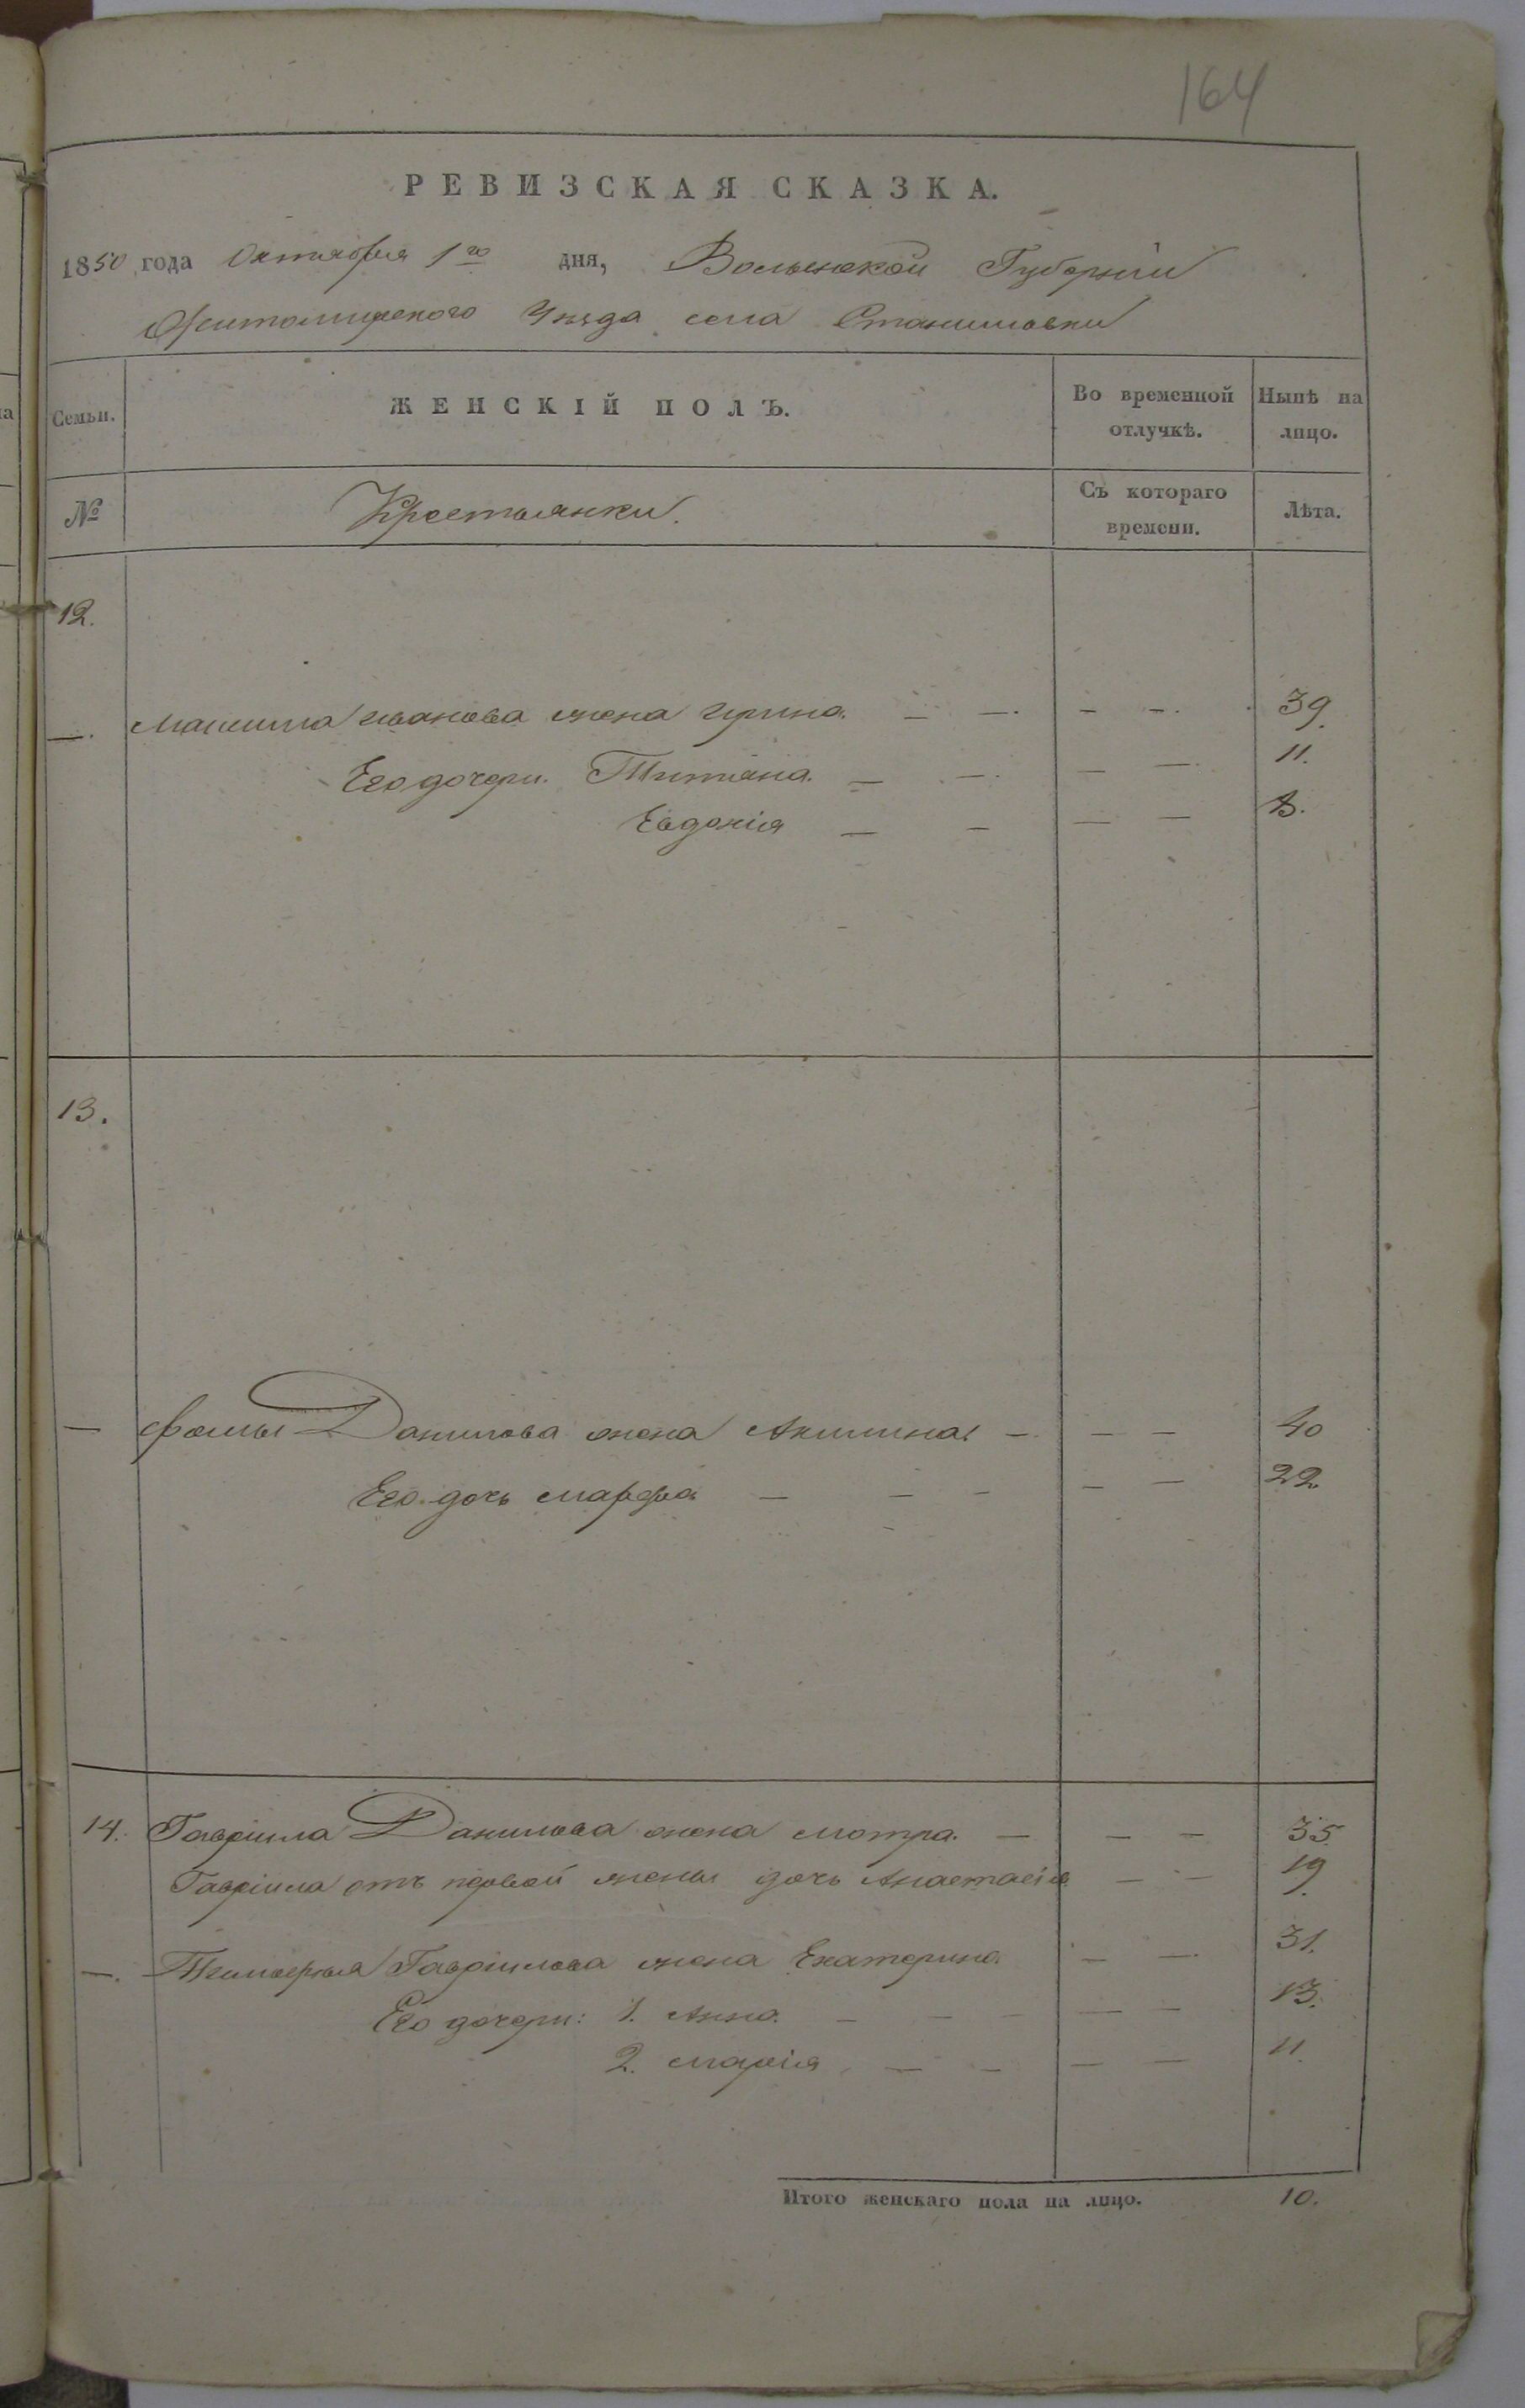 164
РЕВИЗСКАЯ СКАЗКА.
1850 года Октября 1го дня, Волынской Губерніи
Житомирского Уѣзда села Станишовки
Семьи. ЖЕНСКІЙ ПОЛЪ. Во временной отлучкѣ. Нынѣ на лицо.
№ Крестьянки. Съ котораго времени. Лѣта.
12.
—. Максима Иванова жена Ирина. — —. — —. 39.
Его дочери. Татіана. — —. — —. 11.
Евдокія — — — — 8.
13.
— Фомы Данилова жена Акилина — — — 40
Его дочь Марфа — — — — — 22.
14. Гавріила Данилова жена Мотра. — — — 35.
Гавріила отъ первой жены дочь Анастасія — — 19.
—. Гавріилова жена Екатерина. — —. 31.
Его дочери: 1. Анна. — — — — — 13.
2. Марія — — — — 11.
Итого женскаго пола на лицо. 10.